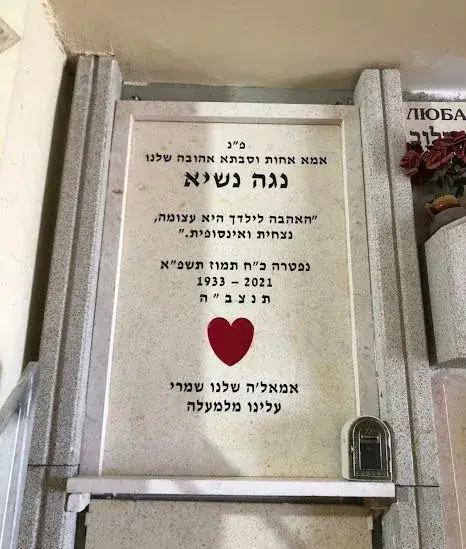 פ"נ
אמא אחות וסבתא אהובה שלנו
נגה נשיא
"האהבה לילדך היא עצומה,
נצחית ואינסופית."
נפטרה כ"ח תמוז תשפ"א
1933 – 2021
ת נ צ ב " ה
אמאל'ה שלנו שמרי
עלינו מלמעלה
ЛЮБА